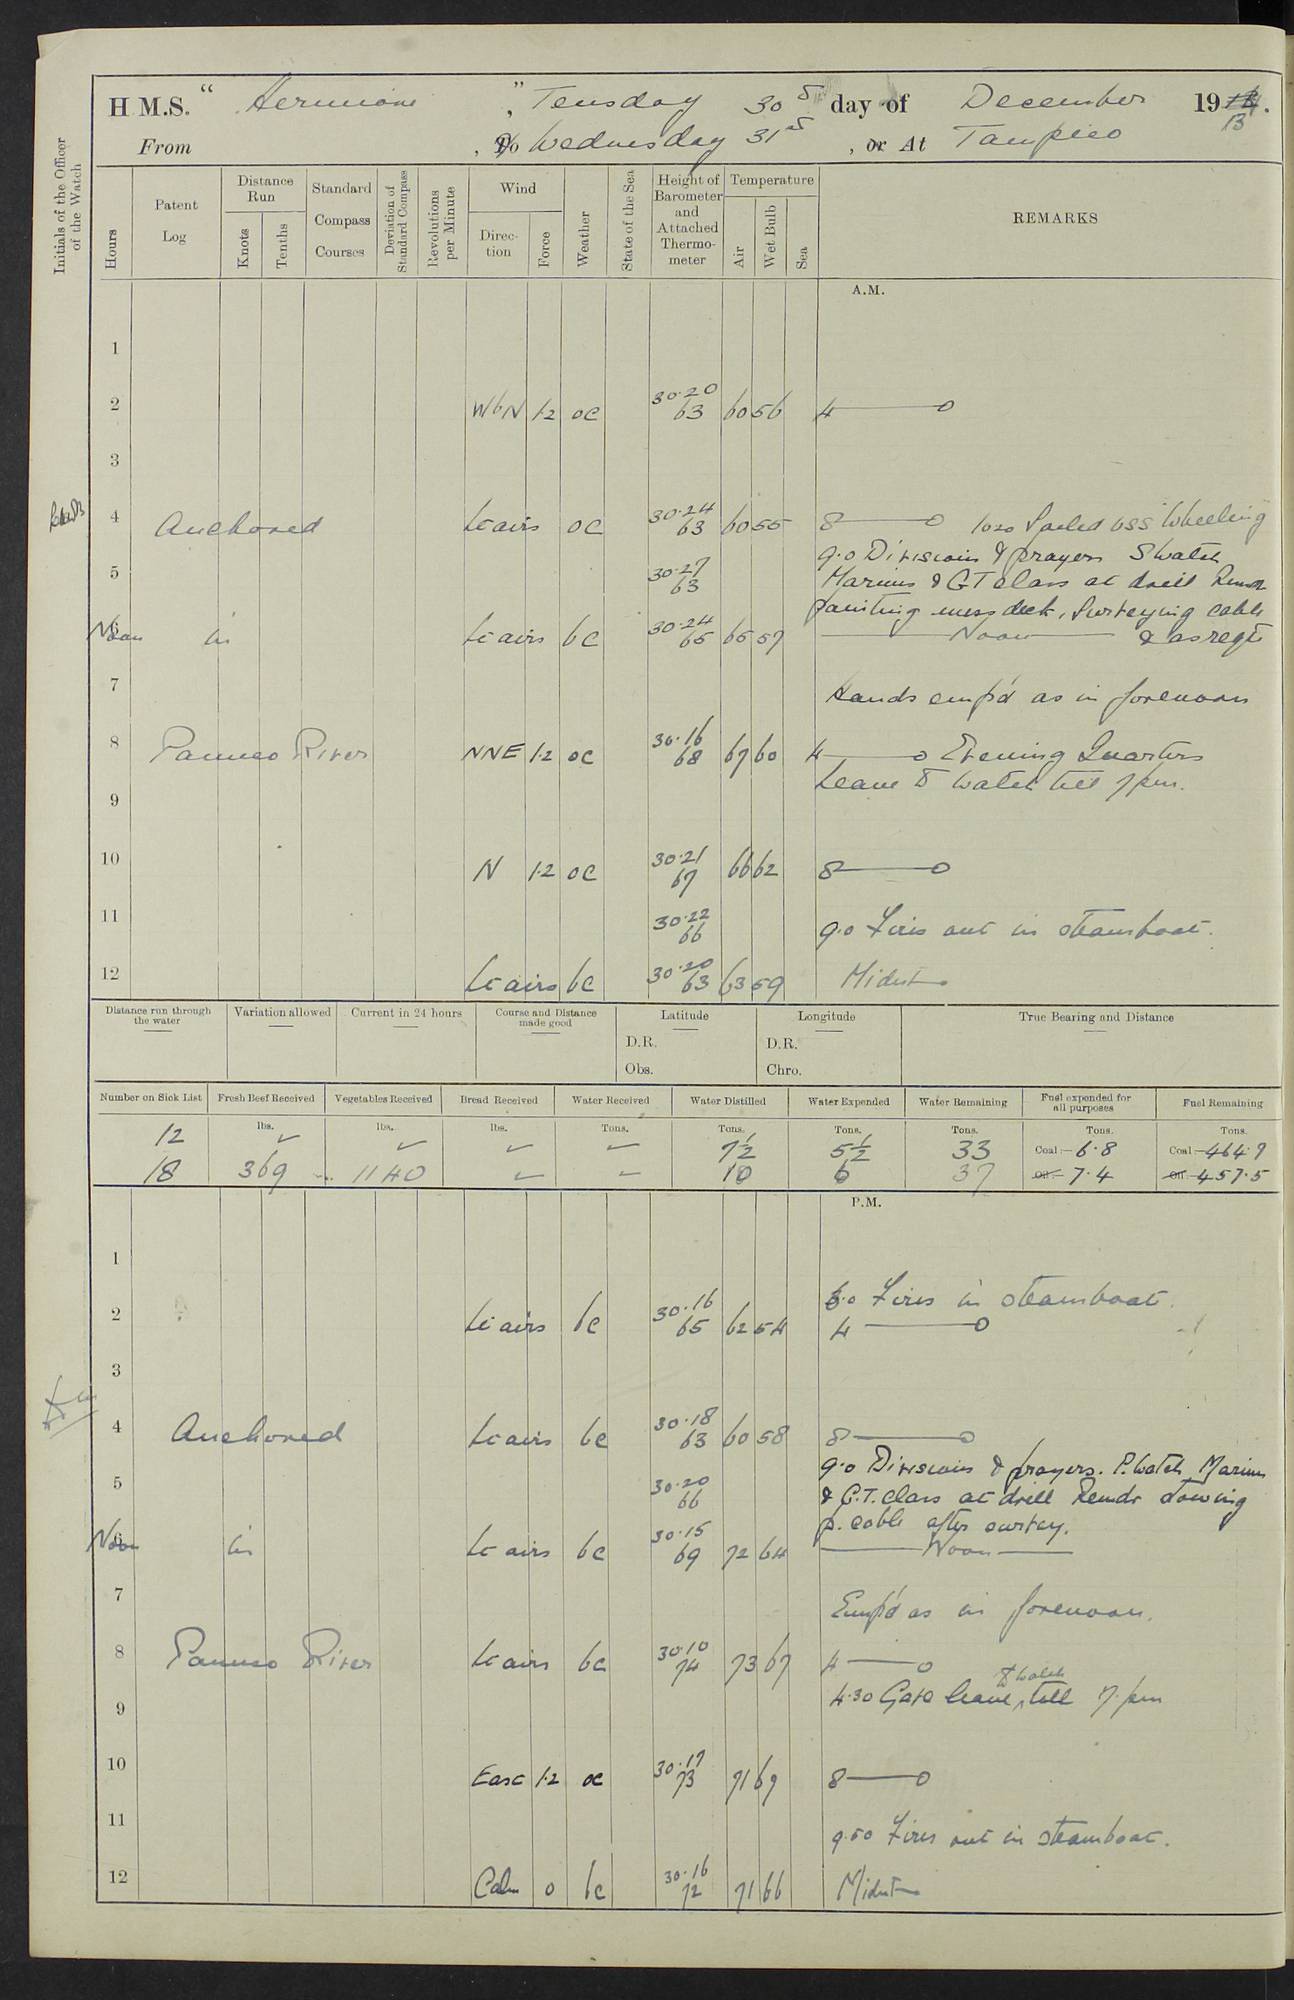 H.M.S. "Hermione", Tuesday 30th day of December 1913.
From , To & Wednesday 31st , or At Tampico
Initials of the Officer of the Watch
Hours
Patent Log
Distance Run
Knots
Tenths
Standard Compass Courses
Deviation of Standard Compass
Revolutions per Minute
Wind
Direction
Force
Weather
State of the Sea
Height of Barometer and Attached Thermometer
Temperature
Air
Wet Bulb
Sea
REMARKS
A.M.
1
2 WbN 1.2 oc 30.20 63 60 56 4
3
4 Anchored Lt airs oc 30.24 63 60 55 8 1020 Sailed USS Wheeling
9.0 Divisions & prayers S watch
5 30.27 63 Marines & GT Class at drill Remdr
painting mess deck, Surveying cable
Noon in Lt airs bc 30.24 65 65 57 Noon & as reqte
7 Hands emp'd as in forenoon
8 Panuco River NNE 1.2 oc 30.16 68 67 60 4 Evening Quarters
Leave to watch till 7 pm.
9
10 N 1.2 oc 30.21 67 66 62 8
11 30.22 66 9.0 Fires out in steamboat.
12 Lt airs bc 30.20 63 63 59 Midnt
Distance run through the water
Variation allowed
Current in 24 hours
Course and Distance made good
Latitude
D.R.
Obs.
Longitude
D.R.
Chro.
True Bearing and Distance
Number on Sick List
Fresh Beef Received
Vegetables Received
Bread Received
Water Received
Water Distilled
Water Expended
Water Remaining
Fuel expended for all purposes
Fuel Remaining
lbs. lbs. lbs. Tons. Tons. Tons. Tons. Tons. Tons.
12 ✓ ✓ ✓ ✓ 7½ 5½ 33 Coal:— 6.8 Coal:— 464.9
18 369 1140 ✓ ✓ 10 6 37 Oil:— 7.4 Oil:— 457.5
P.M.
1
6.0 Fires in steamboat.
2 Lt airs bc 30.16 65 62 54 4
3
4 Anchored Lt airs bc 30.18 63 60 58 8
9.0 Divisions & prayers. P. watch Marines
5 30.20 66 & G.T. Class at drill Remdr stowing
p. cable after survey.
Noon in Lt airs bc 30.15 69 72 64 Noon
7 Emp'd as in forenoon.
8 Panuco River Lt airs bc 30.10 74 73 67 4
4.30 Gave leave to watch till 7. pm
9
10 East 1.2 oc 30.17 73 71 69 8
11 9.50 Fires out in steamboat.
12 Calm 0 bc 30.16 72 71 66 Midnt